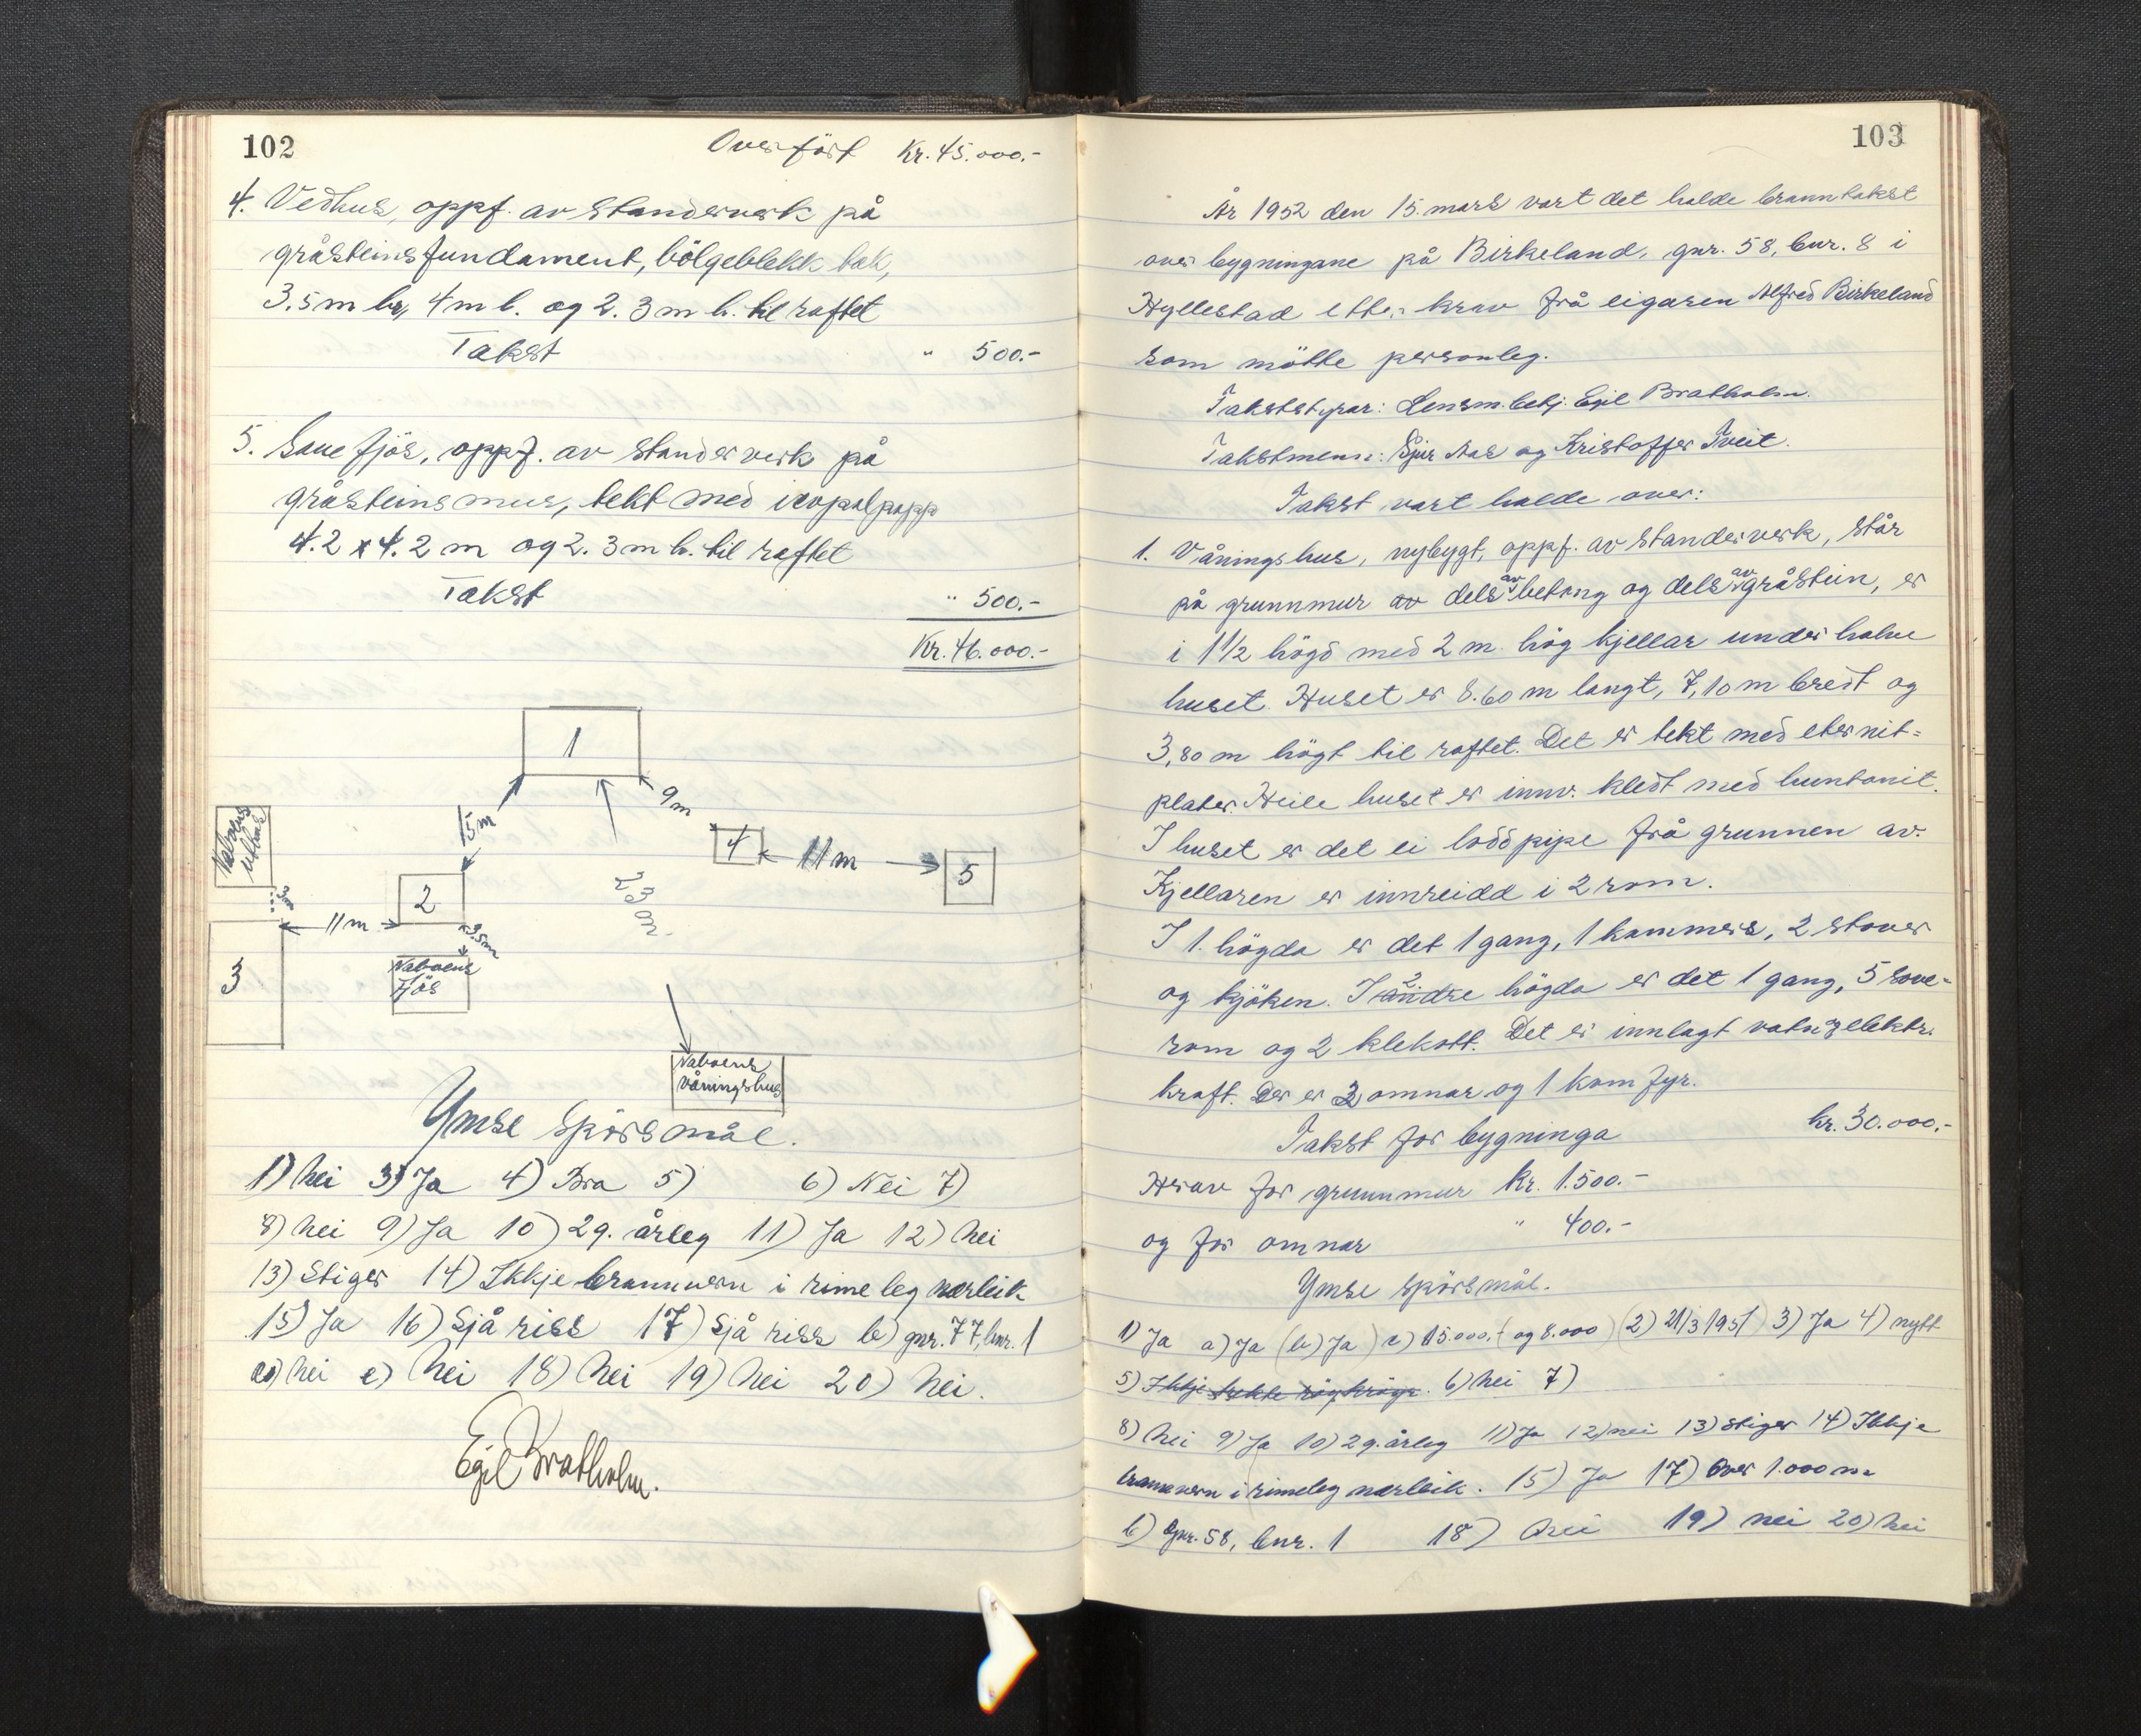 102
Overfört Kr. 45.000.-
4. Vedhus, oppf. av standerverk på
gråsteinsfundament, bölgeblekk tak,
3.5 m br, 4 m l. og 2.3 m h. til raftet
Takst " 500.-
5. Sauefjös, oppf. av standerverk på
gråsteinsmur, tekt med icopalpapp
4.2 x 4.2 m og 2.3 m h. til raftet
Takst " 500.-
Kr. 46.000.-
1
15 m
9 m
Naboens
uthus
4
11 m
5
3 m
2
11 m
3.5 m
3
Naboens
fjös
Naboens
våningshus
Ymse spörsmål.
1) Nei 3) Ja 4) Bra 5) 6) Nei 7)
8) Nei 9) Ja 10) 2 g. årleg 11) Ja 12) Nei
13) Stiger 14) Ikkje brannvern i rimeleg nærleik
15) Ja 16) Sjå riss 17) Sjå riss b) gnr. 77, bnr. 1
Nei e) Nei 18) Nei 19) Nei 20) Nei.
Egil Bratholm.
103
År 1952 den 15. mars vart det halde branntakst
over bygningane på Birkeland, gnr. 58, bnr. 8 i
Hyllestad etter krav frå eigaren Alfred Birkeland
som mötte personleg.
Takststyrar: Lensm.betj. Egil Bratholm.
Takstmenn: Sjur Aas og Kristoffer Tveit.
Takst vart halde over:
1. Våningshus, nybygt, oppf. av standerverk, står
på grunnmur av dels av betong og dels av gråstein, er
i 1 1/2 högd med 2 m. hög kjellar under halve
huset. Huset er 8.60 m langt, 7,10 m bredt og
3,80 m högt til raftet. Det er tekt med eternit=
plater. Heile huset er innv. kledt med huntonit.
I huset er det ei loddpipe frå grunnen av.
Kjellaren er innreidd i 2 rom.
I 1. högda er det 1 gang, 1 kammers, 2 stover
og kjöken. I andre 2 högda er det 1 gang, 5 sove=
rom og 2 klekott. Det er innlagt vatn og elektr.
kraft. Der er 3 omnar og 1 komfyr.
Takst for bygninga kr. 30.000.-
Herav for grunnmur kr. 1.500.-
og for omnar " 400.-
Ymse spörsmål.
1) Ja a) Ja (b) Ja) c) 15.000.- (og 8.000) (2) 21/3 1951) 3) Ja 4) nytt
5) Ikkje tekte rögkröyr. 6) Nei 7)
8) Nei 9) Ja 10) 2 g. årleg 11) Ja 12) nei 13) Stiger 14) Ikkje
brannvern i rimeleg nærleik. 15) Ja 17) Over 1.000 m
b) Gnr. 58, bnr. 1 18) Nei 19) nei 20) Nei